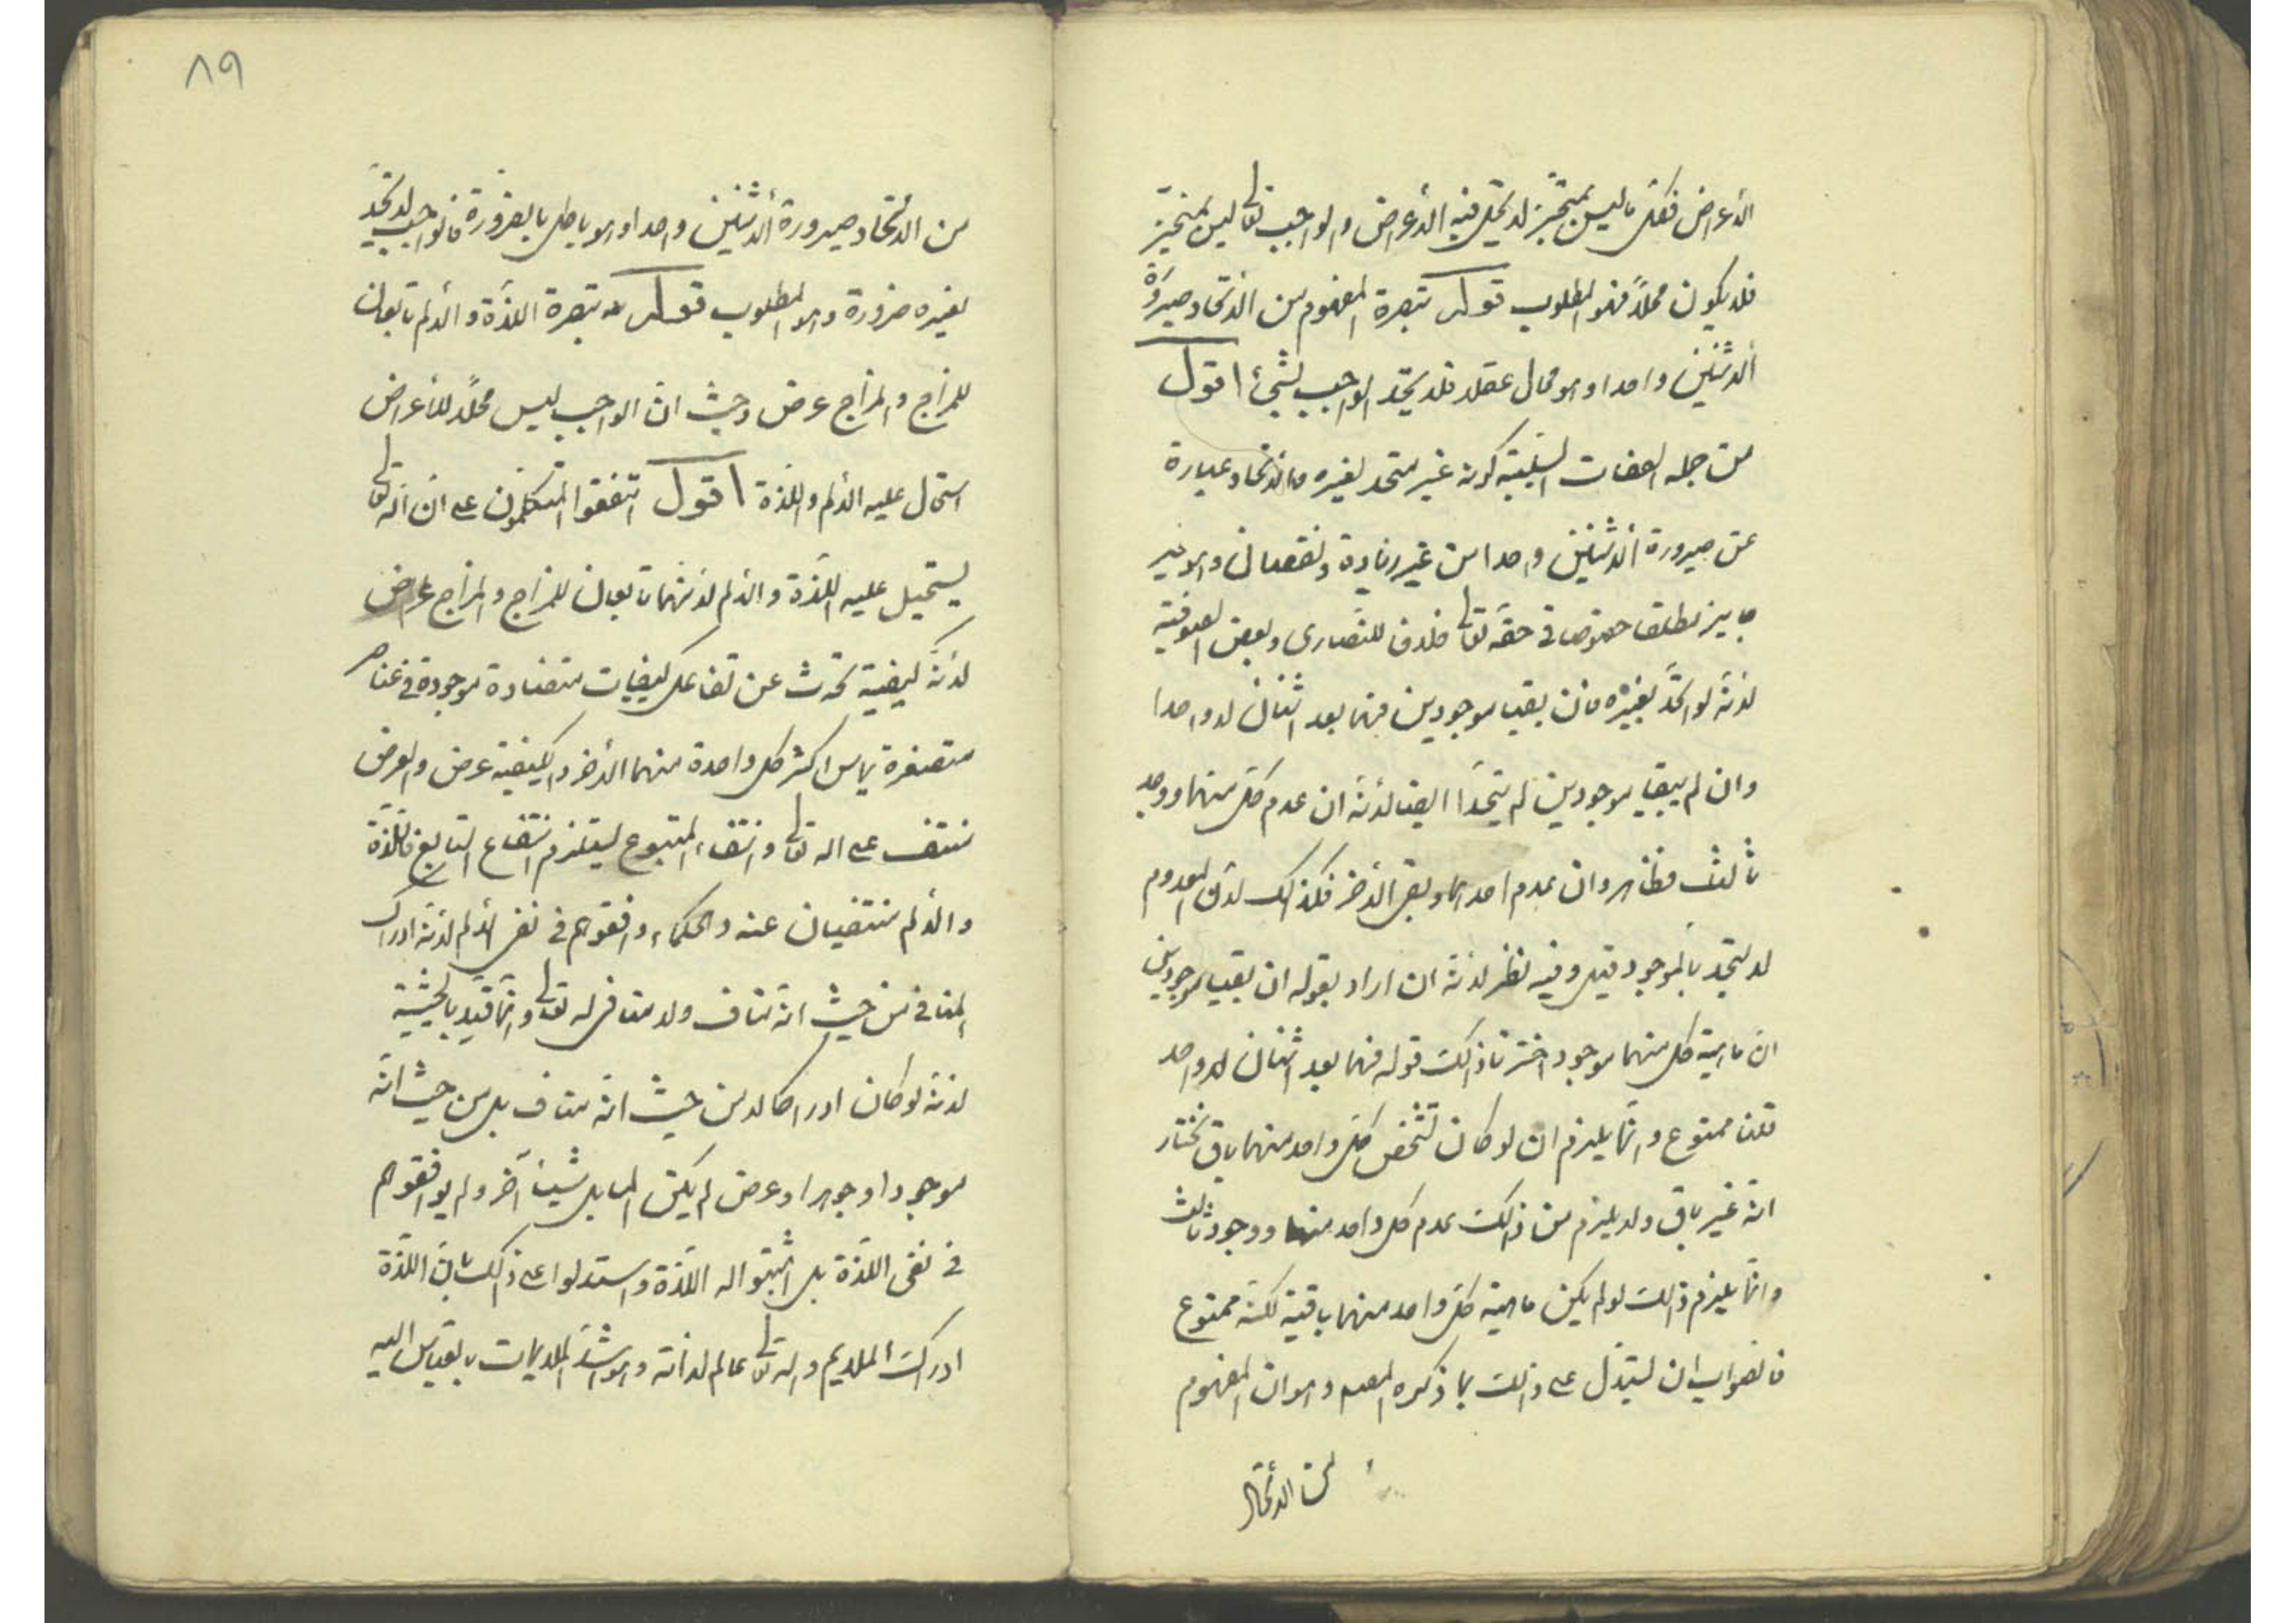 الأعراض فكل ما ليس بمتحيز لا يحل فيه الأعراض والواجب تعالى ليس بمتحيز
فلا يكون محلاً فهو المطلوب قوله تبصرة المفهوم من الاتحاد صيرورة
الاثنين واحدا وهو محال عقلا فلا يتحد الواجب بشيء اقول
من جمله الصفات السلبية كونه غير متحد بغيره فالاتحاد عبارة
عن صيرورة الاثنين واحدا من غير زيادة ونقصان وهو غير
جايز مطلقا خصوصا في حقه تعالى خلاف للنصارى وبعض الصوفية
لانه لو اتحد بغيره فان بقيا موجودين فهما بعد اثنان لا واحدا
وان لم يبقيا موجودين لم يتحدا ايضا لانه ان عدم كل منهما ووجد
ثالث فظاهر وان عدم احدهما وبقى الآخر فكذلك لان المعدوم
لا يتحد بالموجود قيل وفيه نظر لانه ان اراد بقوله ان بقيا موجودين
ان ماهية كل منهما موجود اخترنا ذلك قوله فهما بعد اثنان لا واحد
قلنا ممنوع وانما يلزم ان لو كان تشخص كل واحد منهما باق نختار
انه غير باق ولا يلزم من ذلك عدم كل واحد منهما ووجود ثالث
وانما يلزم ذلك لو لم يكن ماهية كل واحد منهما باقية لكنه ممنوع
فالصواب ان يستدل على ذلك بما ذكره المصم وهو ان المفهوم
من الاتحاد
٨٩
من الاتحاد صيرورة الاثنين واحدا وهو باطل بالضرورة فالواجب لا يتحد
بغيره ضرورة وهو المطلوب قوله تبصرة اللذة والألم تابعان
للمزاج والمزاج عرض وحيث ان الواجب ليس محلاً للأعراض
استحال عليه الألم واللذة اقول اتفقوا المتكلمون على ان الله تعالى
يستحيل عليه اللذة والألم لانهما تابعان للمزاج والمزاج عرض
لانه كيفية تحدث عن تفاعل كيفيات متضادة موجودة في عناصر
متصغرة يماس اكثر كل واحدة منهما الأخر والكيفية عرض والعرض
منتف على اله تعالى وانتفاء المتبوع يستلزم انتفاع التابع فاللذة
والألم منتفيان عنه والحكماء وافقوهم في نفى الألم لانه ادراك
المنافي من حيث انه مناف ولا منافى له تعالى وانما قيد بالحيثية
لانه لو كان ادراكا لا من حيث انه مناف بل من حيث انه
موجودا وجوهرا وعرض لم يكن الما بل شيئاً آخر ولم يوافقوهم
في نفى اللذة بل اثبتوا له اللذة واستدلوا على ذلك بان اللذة
ادرك الملايم واله تعالى عالم لذاته وهو اشد الملايمات بالقياس اليه